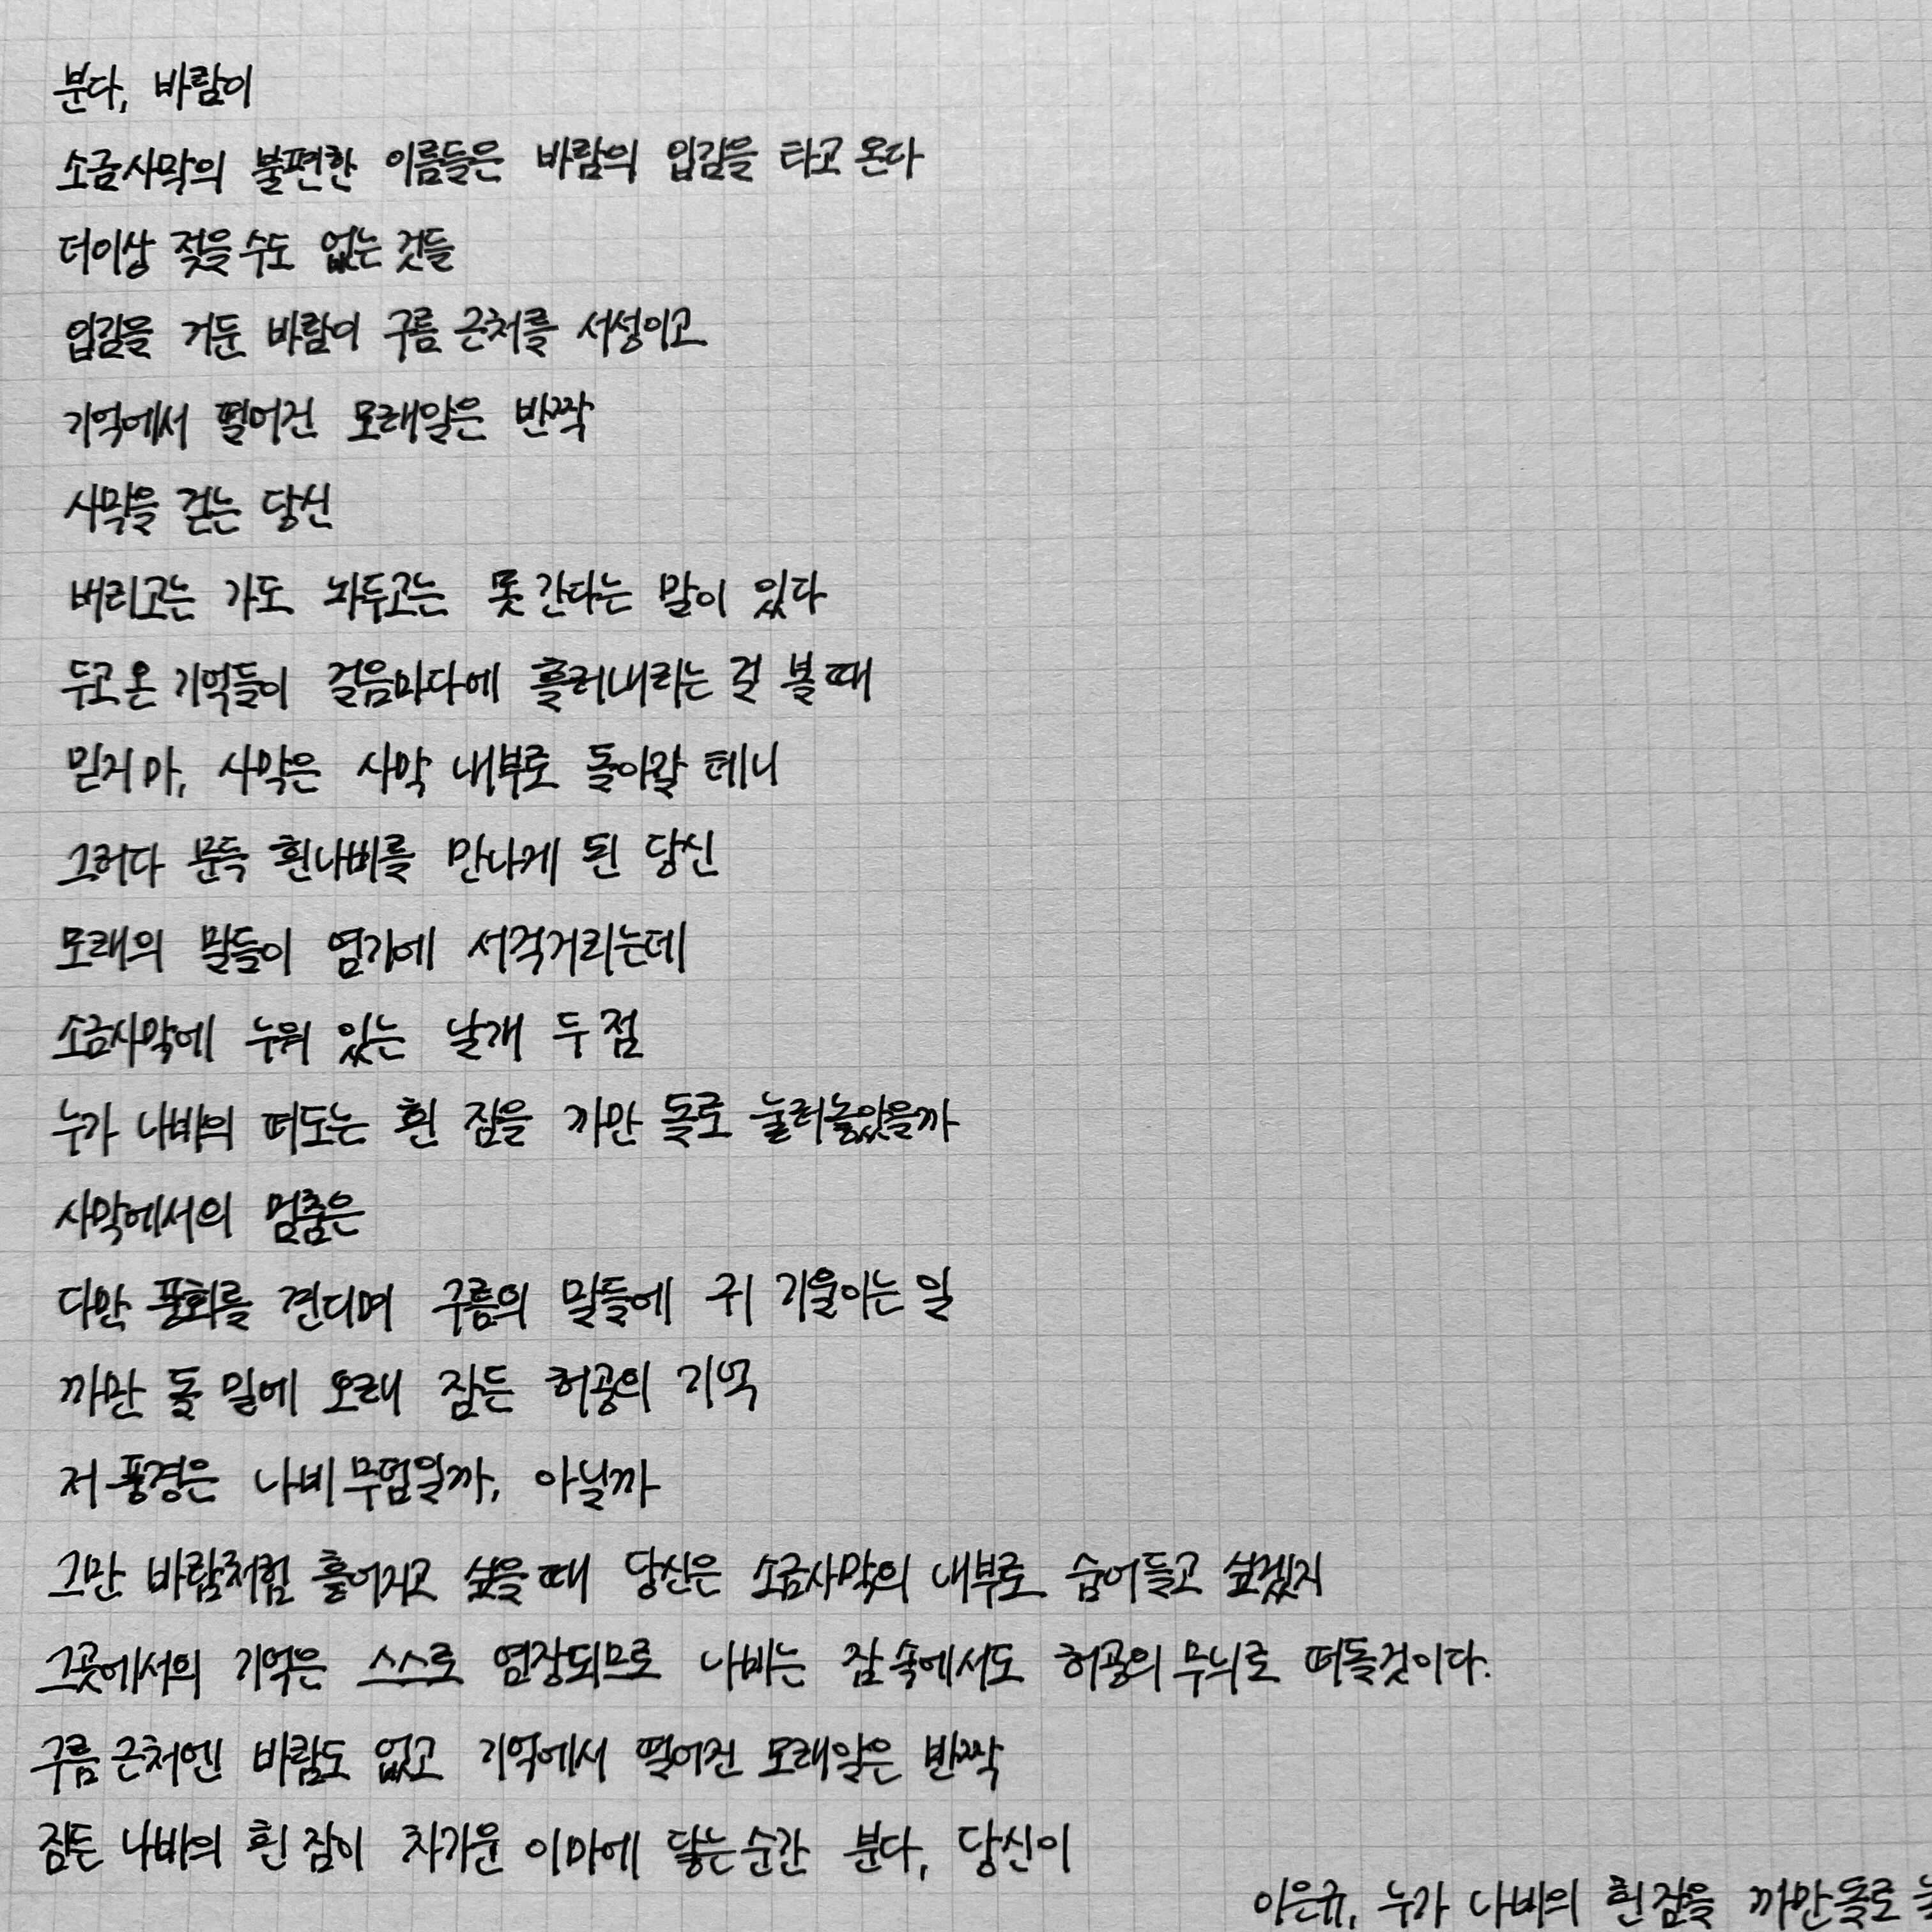 분다, 바람이
소금사막의 불편한 이름들은 바람의 입김을 타고 온다
더이상 젖을 수도 없는 것들
입김을 거둔 바람이 구름 근처를 서성이고
기억에서 떨어진 모래알은 반짝
사막을 걷는 당신
버리고는 가도 놔두고는 못 간다는 말이 있다
두고 온 기억들이 걸음마다에 흘러내리는 걸 볼 때
믿지 마, 사막은 사막 내부로 돌아왈 테니
그러다 문득 흰나비를 만나게 된 당신
모래의 말들이 열기에 서걱거리는데
소금사막에 누워 있는 날개 두 점
누가 나비의 떠도는 흰 잠을 까만 돌로 눌러놓았을까
사막에서의 멈춤은
다만 풍화를 견디며 구름의 말들에 귀 기울이는 일
까만 돌 밑에 오래 잠든 허공의 기억
저 풍경은 나비 무덤일까, 아닐까
그만 바람처럼 흩어지고 싶을 때 당신은 소금사막의 내부로 숨어들고 싶겠지
그곳에서의 기억은 스스로 염장되므로 나비는 잠 속에서도 허공의 무늬로 떠돌것이다.
구름 근처엔 바람도 없고 기억에서 떨어진 모래알은 반짝
잠든 나비의 흰 잠이 차가운 이마에 닿는 순간 분다, 당신이
이은규, 누가 나비의 흰 잠을 까만 돌로